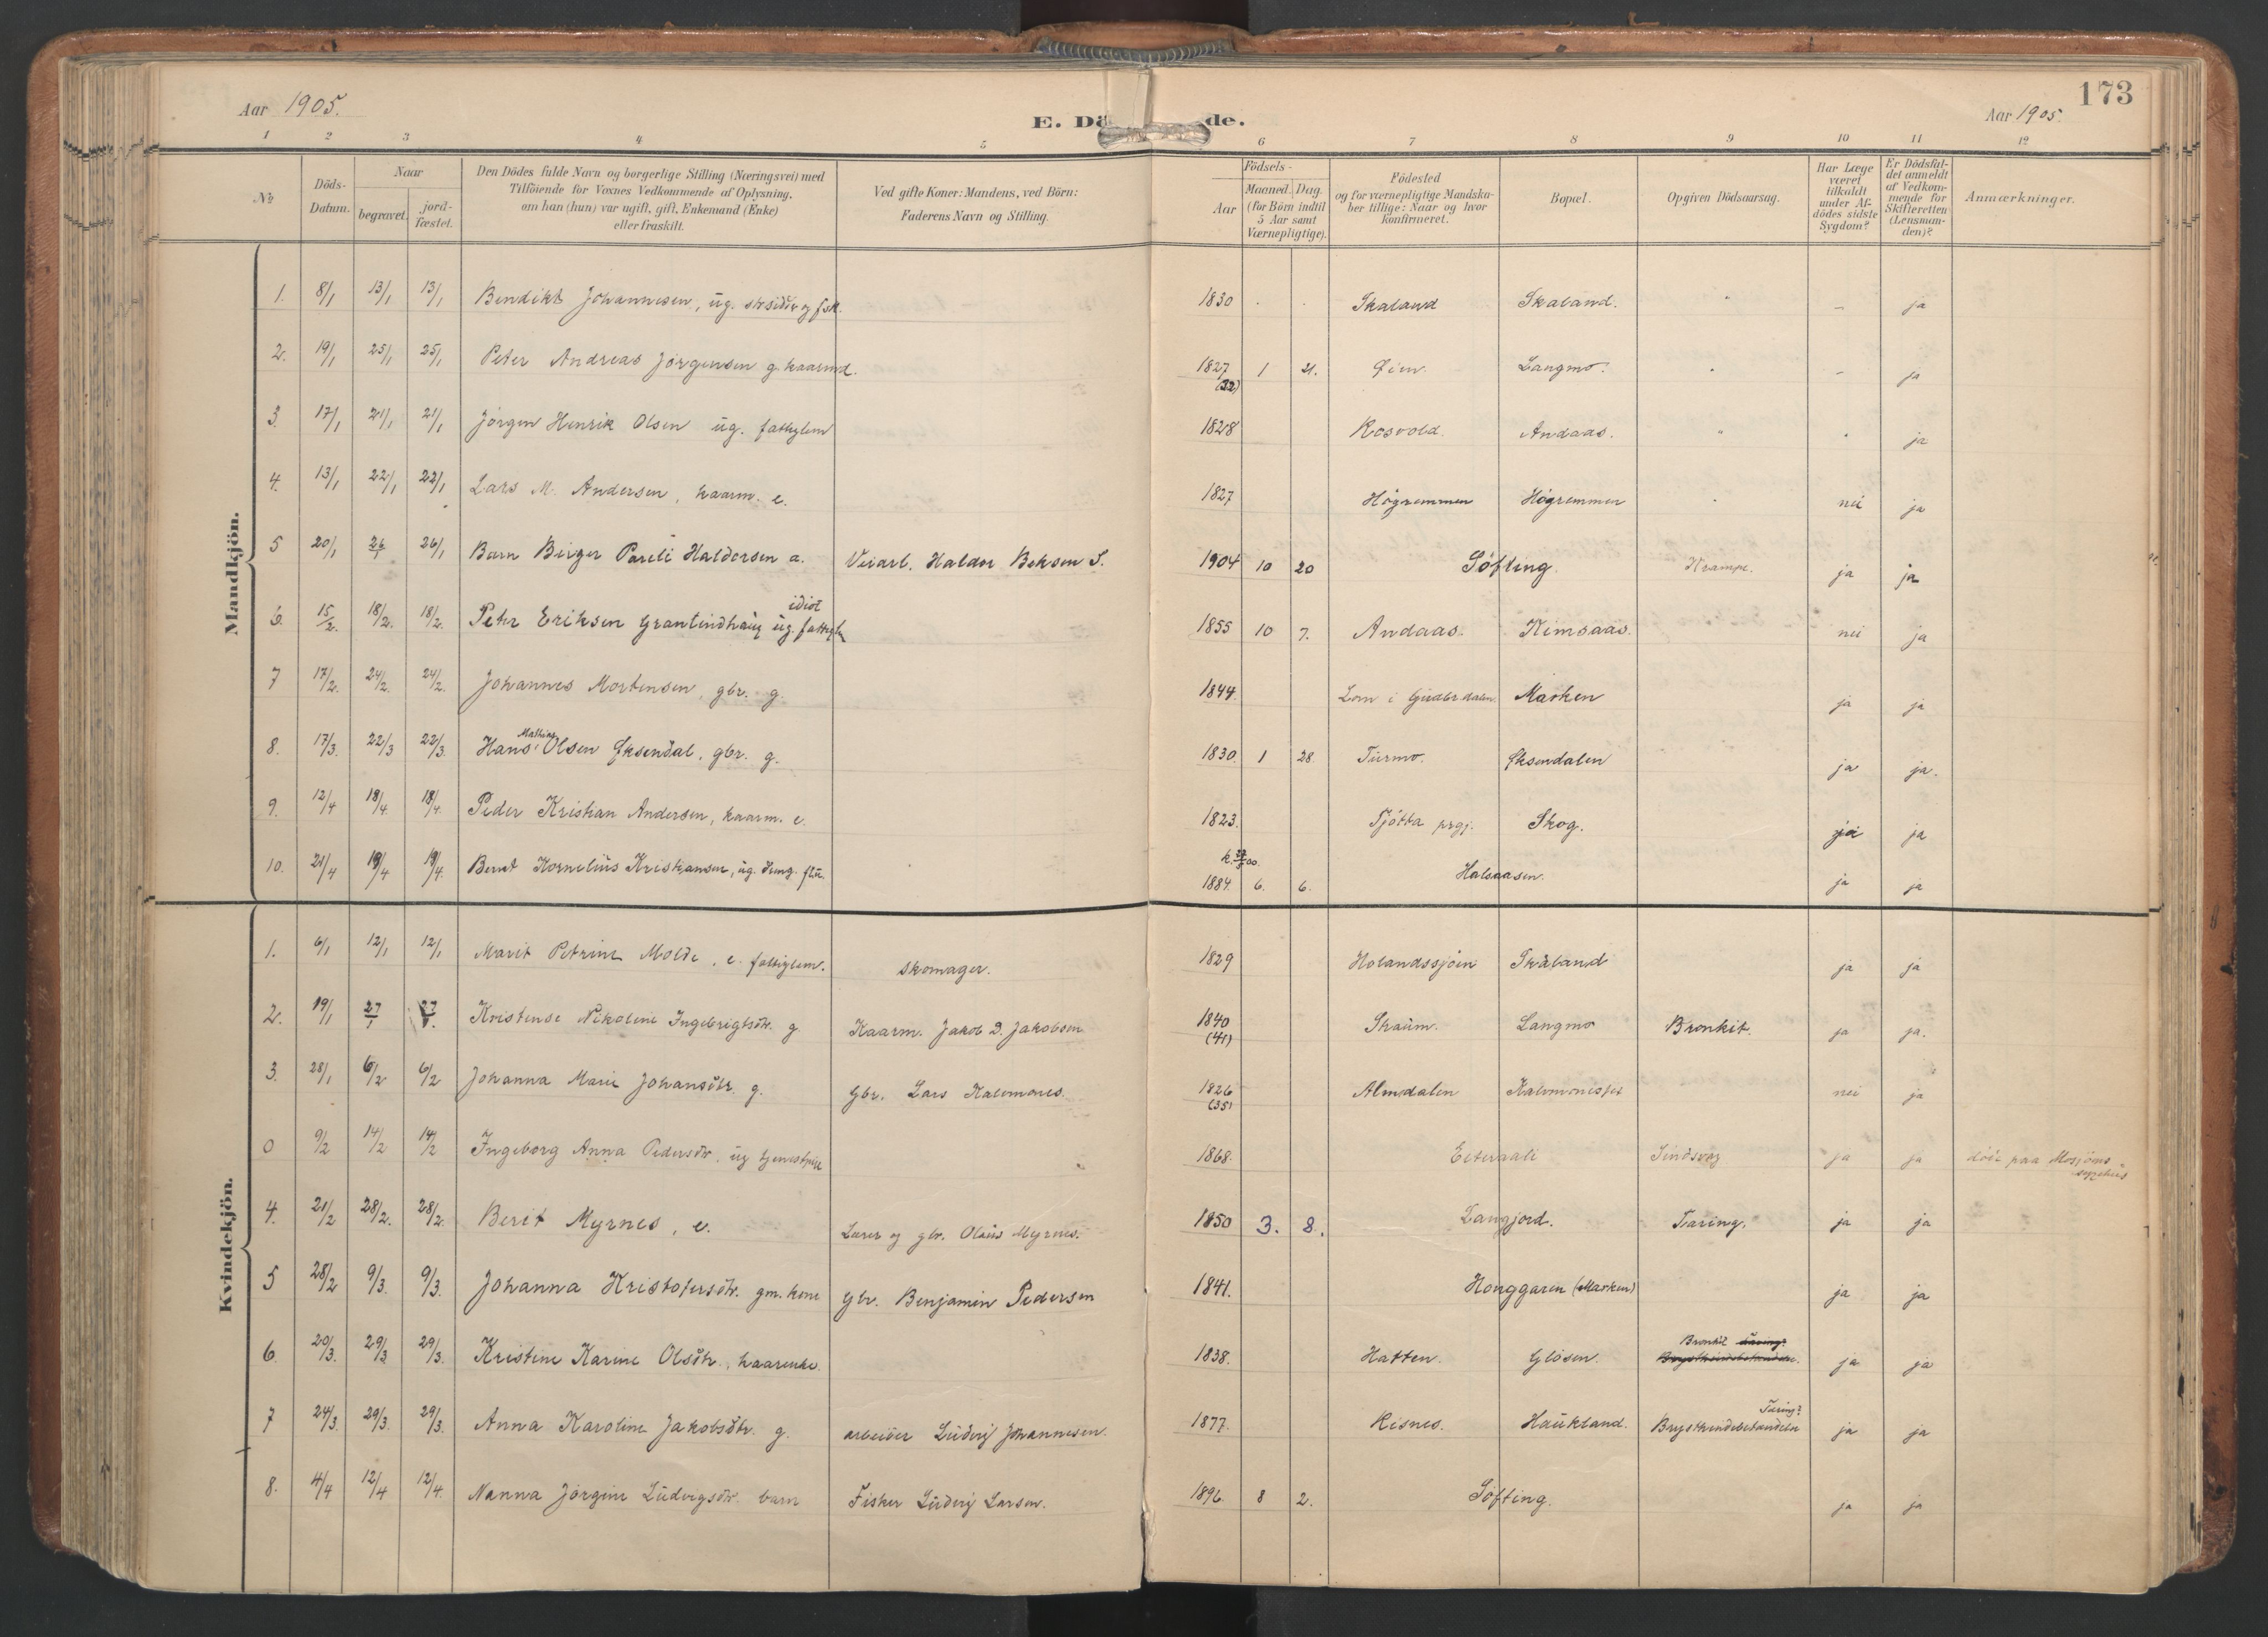 Aar 1905.
E. Dö de.
Aar 1905.
173
1 2 3 4 5 6 7 8 9 10 11 12
№
Döds-Datum.
Naar
begravet.
jordfæstet.
Den Dödes fulde Navn og borgerlige Stilling (Næringsvei) med
Tilföiende for Voxnes Vedkommende af Oplysning,
om han (hun) var ugift, gift, Enkemand (Enke)
eller fraskilt.
Ved gifte Koner: Mandens, ved Börn:
Faderens Navn og Stilling.
Födsels-
Aar
Maaned. Dag.
(for Börn indtil
5 Aar samt
Værnepligtige).
Födested
og for værnepligtige Mandska-
ber tillige: Naar og hvor
konfirmeret.
Bopæl.
Opgiven Dödsaarsag.
Har Læge
været
tilkaldt
under Af-
dödes sidste
Sygdom?
Er Dödsfal-
det anmeldt
af Vedkom-
mende for
Skifteretten
(Lensman-
den)?
Anmærkninger.
Mandkjön.
1. 8/1 13/1 13/1 Bendikt Johannesen, ug. 1830 Skaland Skaland. " - ja
2. 19/1 25/1 25/1 Peter Andreas Jörgensen g. kaarmd. 1827 (32) 1 21. Lien. Langmo. " - ja
3. 17/1 21/1 21/1 Jörgen Henrik Olsen ug. fattiglem 1828 Rosvold Andaas. " " ja
4. 13/1 22/1 22/1 Lars M. Andersen, kaarm. e. 1827 Högremmen Högremmen " nei ja
5 20/1 26/1 26/1 Barn Birger Pareli Haldorsen a. Veiarb. Haldor Beksen S. 1904 10 20 Söfting Krampe. ja ja
6. 15/2. 18/2. 18/2. Peter Eriksen Grantindhaug ug. idiot fattiglem 1855 10 7. Andaas. Kimsaas. nei ja
7 17/2. 24/2. 24/2. Johannes Mortensen, gbr. g. 1844. Lom i Gudbrdalen Marken ja ja
8. 17/3. 22/3 22/3. Hans Mathias Olsen Öksendal, gbr. g. 1830. 1 28. Turmo. Öksendalen ja ja.
9. 12/4 18/4. 18/4. Peder Kristian Andersen, kaarm. e. 1823. Tjötta prgj. Skog. ja ja
10. 21/4 19/4 19/4. Bernt Kornelius Kristiansen, ug. 1884. 6. 6. Halsaasen. ja ja
Kvindekjön.
1. 6/1 12/1 12/1 Marit Petrine Molde, e. fattiglem. skomager. 1829 Holandssjöen Skåland ja ja
2. 19/1 27/1 27/1. Kristense Nikoline Ingebrigtsdtr. g. Kaarm. Jakob D. Jakobsen 1840 (41) Skaum. Langmo Bronkit. ja ja.
3. 28/1 6/2 6/2 Johanna Marie Johansdtr. g. Gbr. Lars Kalvmones. 1826 (35) Almdalen nei ja
0 9/2 14/2 14/2 Ingeborg Anna Pedersdtr, ug tjenestpige 1868. Eiteraali Sindsvag ja ja döde paa Mosjöens sygehus
4. 21/2 28/2. 28/2. Berit Myrnes, e. Lærer og gbr. Olaus Myrnes. 1850 3. 8. Langjord. Tæring. ja ja
5 28/2 9/3. 9/3. Johanna Kristofersdtr. gm. kone Gbr. Benjamin Pedersen 1841. Honggaren (Marken) ja ja
6. 20/3. 29/3 29/3. Kristine Karine Olsdtr., kaarenke. 1838. Hatten. Glosen. Bronkit tæring? Brysthindebetændelse. ja ja
7 24/3. 29/3. 29/3. Anna Karoline Jakobsdtr. g. arbeider Ludvig Johannesen. 1877. Risnes. Haukland. Tæring? Brysthindebetændelse ja ja
8. 4/4 12/4 12/4. Nanna Jörgine Ludvigsdtr. barn Fisker Ludvig Larsen. 1896. 8 2. Söfting. ja ja